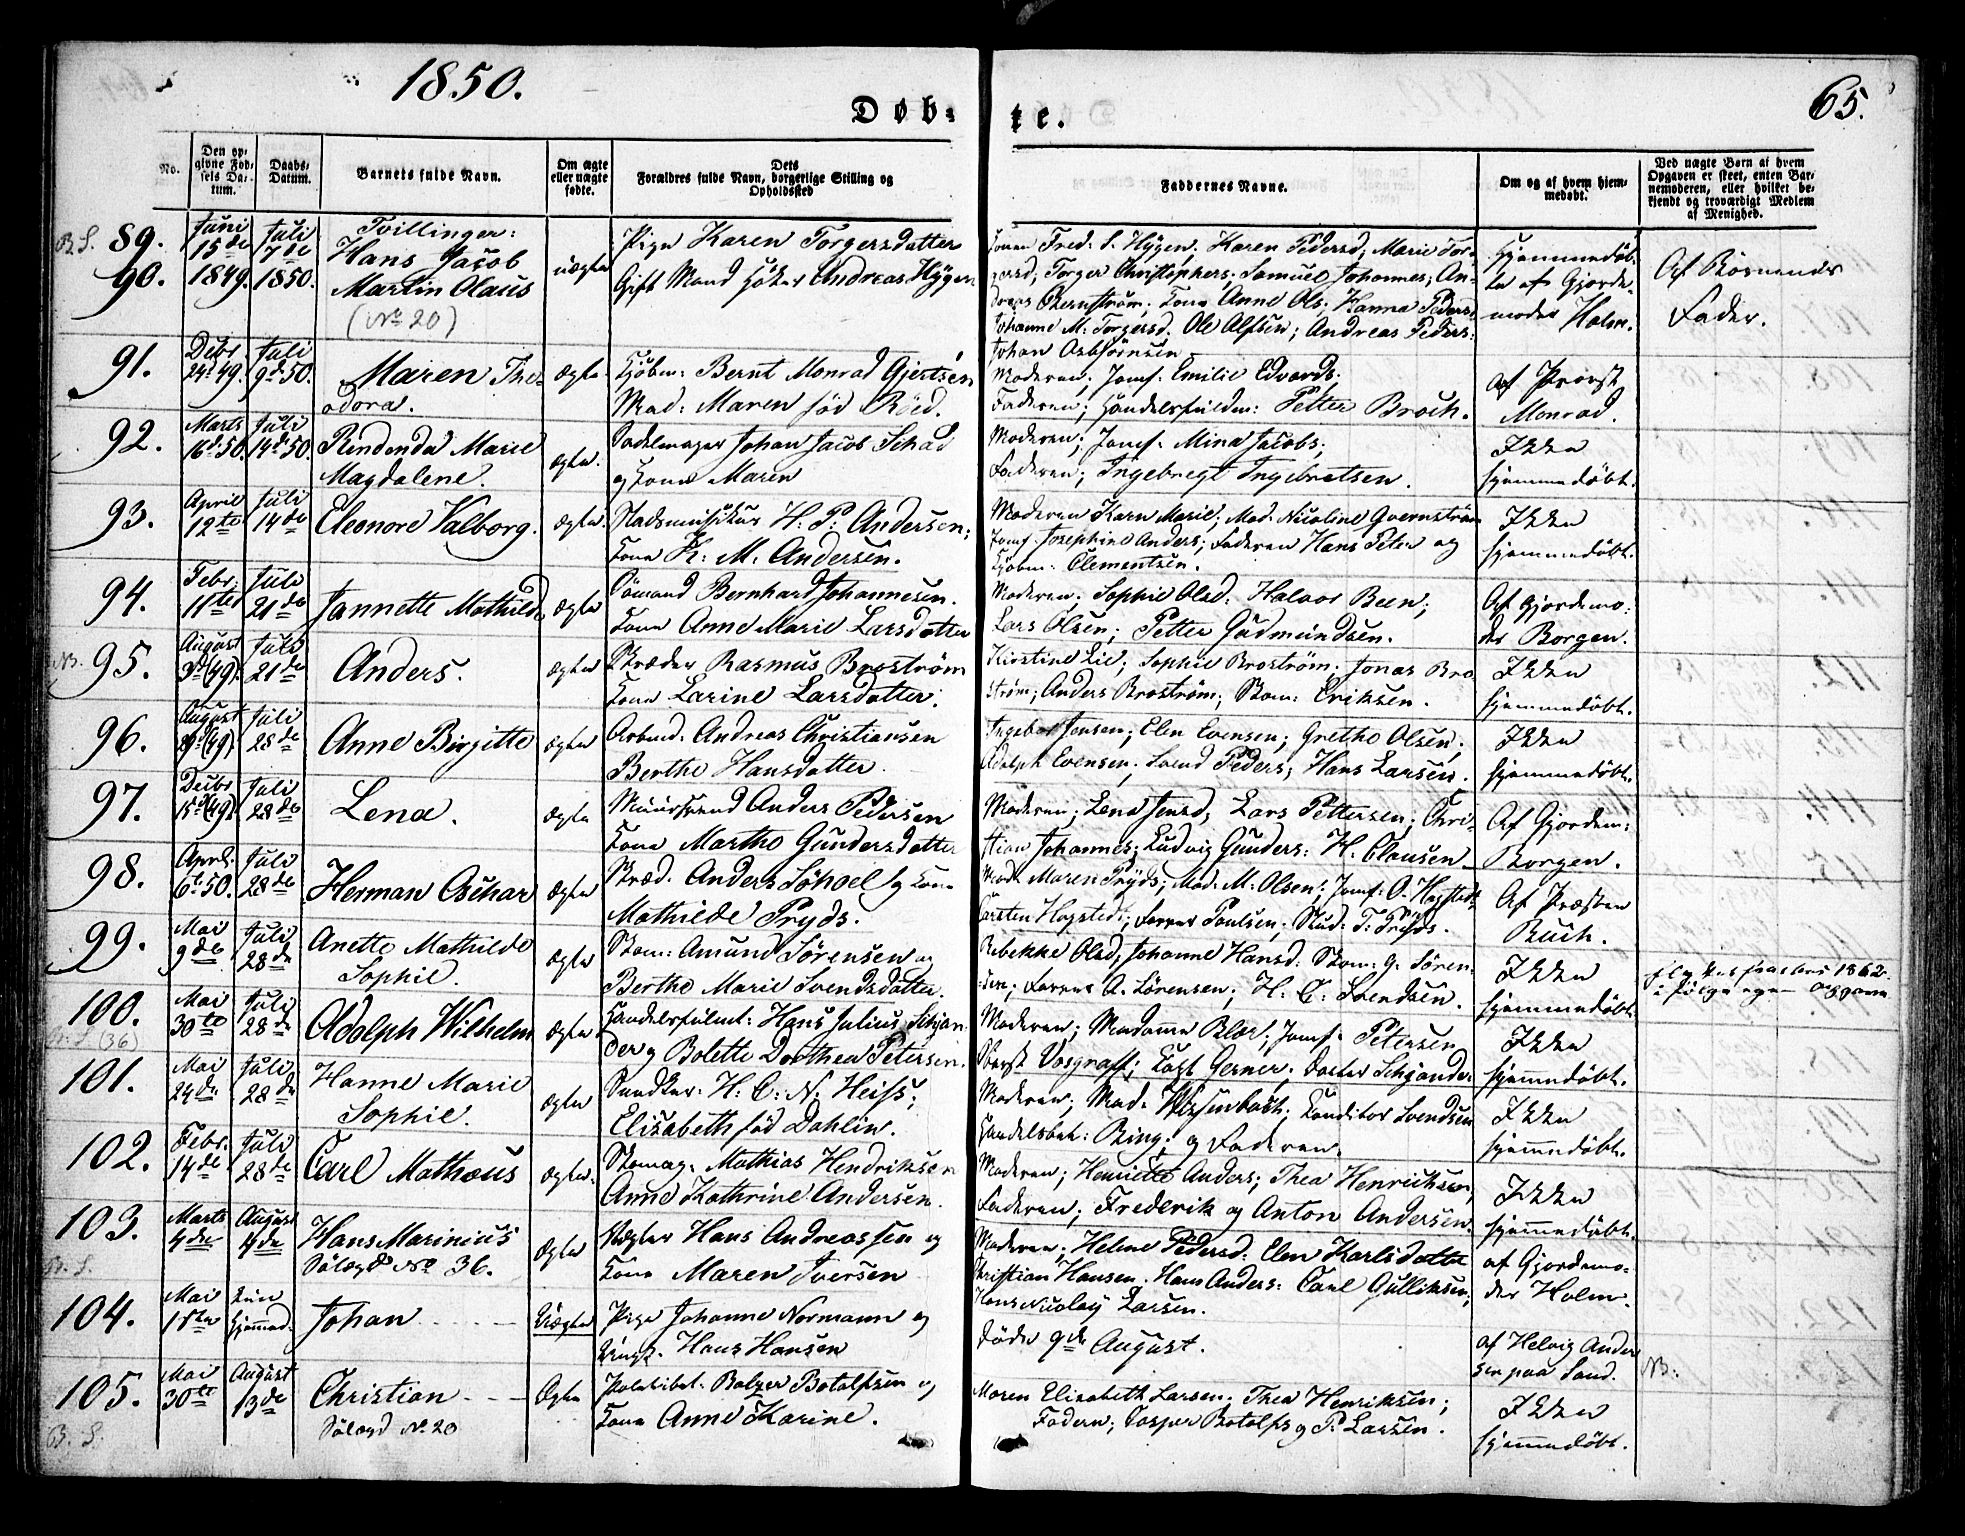 1850.
65.
Døb-
te.
No.
Den op-
givne Fød-
sels Da-
tum.
Daabs-
Datum.
Barnets fulde Navn.
Om ægte
eller uægte
fødte.
Dets
Forældres fulde Navn, borgerlige Stilling og
Opholdssted
Faddernes Navne.
Om og af hvem hjem-
medøbt.
Ved uægte Børn af hvem
Opgaven er skeet, enten Bar-
nemoderen, eller hvilket be-
kjendt og troværdigt Medlem
af Menighed.
89.
90.
Juni
15de
1849.
Juli
7de
1850.
Tvillinger:
Hans Jacob
Martin Olaus
(No 20)
uægte
Pige Karen Torgersdatter
Gift Mand Andreas Hygen
Kone Fred. S. Hygen; Karen Pedersd; Marie Tor-
gersd; Torger Christophers; Samuel Johannes; An-
dreas Bernstrøm; Kone Anne Ols. Hanna Peders.
Johanne M. Torgersd. Ole Alfsen; Andreas Peders:
Johan Asbjørnsen
Hjemmedøb-
te af Gjorde-
moder Holm.
Af Børnenes
Fader.
91.
Debr.
24d 49.
Juli
9d 50.
Maren The-
odora.
ægte.
Kjøbm: Bernt Monrad Gjertsen
Mad: Maren fød Röed.
Moderen; Jomf: Emilie Edvards;
Faderen; Petter Broch.
af Provst
Monrad.
92.
Marts
16d 50.
Juli
14d 50.
Marie
Magdalene.
ægte.
Sadelmager Johan Jacob Schad
og Kone Maren
Moderen; Jomf. Mina Jacobs;
Faderen; Ingebregt Ingebretsen.
Ikke
hjemmedøbt.
93.
April
12te
Juli
14de
Eleonore Valborg.
ægte.
Stadsmusikus H. P. Andersen;
Kone K. M. Andersen.
Moderen Karn Marie; Mad. Nicoline Qvernstrøm
Jomf. Josephine Anders; Faderen Hans Peter og
Kjøbm: Clementsen.
Ikke
hjemmedøbt.
94.
Febr.
11te
Juli
21de
Jannette Mathilde
ægte
Sømand Bernhard Johannesen.
Kone Anne Marie Larsdatter
Moderen; Sophie Olsd: Halvor Been;
Lars Olsen; Petter Gudmundsen.
Af Gjordemo-
der Borgen.
95.
August
3d (49).
Juli
21de
Anders.
ægte
Skræder Rasmus Broström
Kone Larine Larsdatter.
Kirstine Lie; Sophie Broström. Jonas Bro-
ström; Anders Broström; Skom: Eriksen.
Ikke
hjemmedøbt.
96.
August
(49)
Juli
28de
Anne Birgitte
ægte
Arbmd. Andreas Christiansen
Berthe Hansdatter.
Jensen; Elen Evensen; Grethe Olsen;
Adolph Evensen; Svend Peders; Hans Larsen.
Ikke
hjemmedøbt.
97.
Decbr
15d (49)
Juli
28de
Lena.
ægte
Muursvend Anders Pedersen
Kone Marthe Gundersdatter
Moderen; Lena Jensd; Lars Pettersen; Chri-
stian Johannes; Ludvig Gunders: H. Clausen
Af Gjordem:
Borgen.
98.
April.
6te 50.
Juli
28de
Herman Oschar
ægte
Skræd. Anders Söhoel og Kone
Mathilde Pryds.
Mad. Maren Pryds; Mad. M. Olsen; Jomf: O. Hagsted;
Carsten Hagsted; Poulsen; Stud. T. Pryds.
Af Præsten
Buch.
99.
Mai
9de
Juli
28de
Anette Mathilde
Sophie.
ægte
Skom: Amund Sörensen og
Berthe Marie Svendsdatter.
Rebekke Olsd; Johanne Hansd: Skom: G. Sören-
sen; A. Sörensen; H. C. Svendsen.
Ikke
hjemmedøbt.
1862
100.
Mai
30te
Juli
28de
(36)
Adolph Wilhelm
ægte
Hans Julius Schjan-
der og Bolette Dorthea Petersen.
Moderen; Madame Blær; Jomf. Petersen
Vosgraff; Gerner; Schjander
Ikke
hjemmedøbt.
101.
Mai
24de
Juli
28de
Hanne Marie
Sophie.
ægte
H. C. N. Heiss;
Elisabeth fød Dahlin.
Moderen; Mad. Conditor Svendsen
Handelsbet: Ring; og Faderen.
Ikke
hjemmedøbt.
102.
Febr.
14de
Juli
28de
Carl Mathæus
ægte
Skomag. Mathias Hendriksen
Anne Kathrine Andersen.
Moderen; Henriette Anders; Thea Henriksen;
Faderen; Frederik og Anton Andersen.
Ikke
hjemmedøbt.
103.
Marts
4de
August
4de
Hans Marinius
No 36.
ægte
Vægter Hans Andreassen og
Kone Maren Iversen
Moderen; Helene Pedersd. Elen Karlsdatter
Christian Hansen. Hans Anders: Carl Gulliksen;
Hans Nicolay Larsen.
af Gjordemo-
der Holm.
104.
Mai
15de
Kun
hjemmed.
Johan
Uægte
Pige Johanne Normann og
Ungk. Hans Hansen
Døde 9de August.
af Helvig Ander-
sen paa Sand.
NB:
105.
Mai
30te
August
13de
Christian
No 20
B. S.
Ægte
Politibet. Balzer Botolfsen og
Kone Anne Karine.
Maren Elisabeth Larsen; Thea Henriksen;
Fadern; Casper Botolfs og P. Larsen.
Ikke
hjemmedøbt.